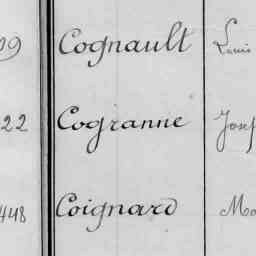 09 Cognault Louis
22 Cogranne Josep
448 Coignard Ma